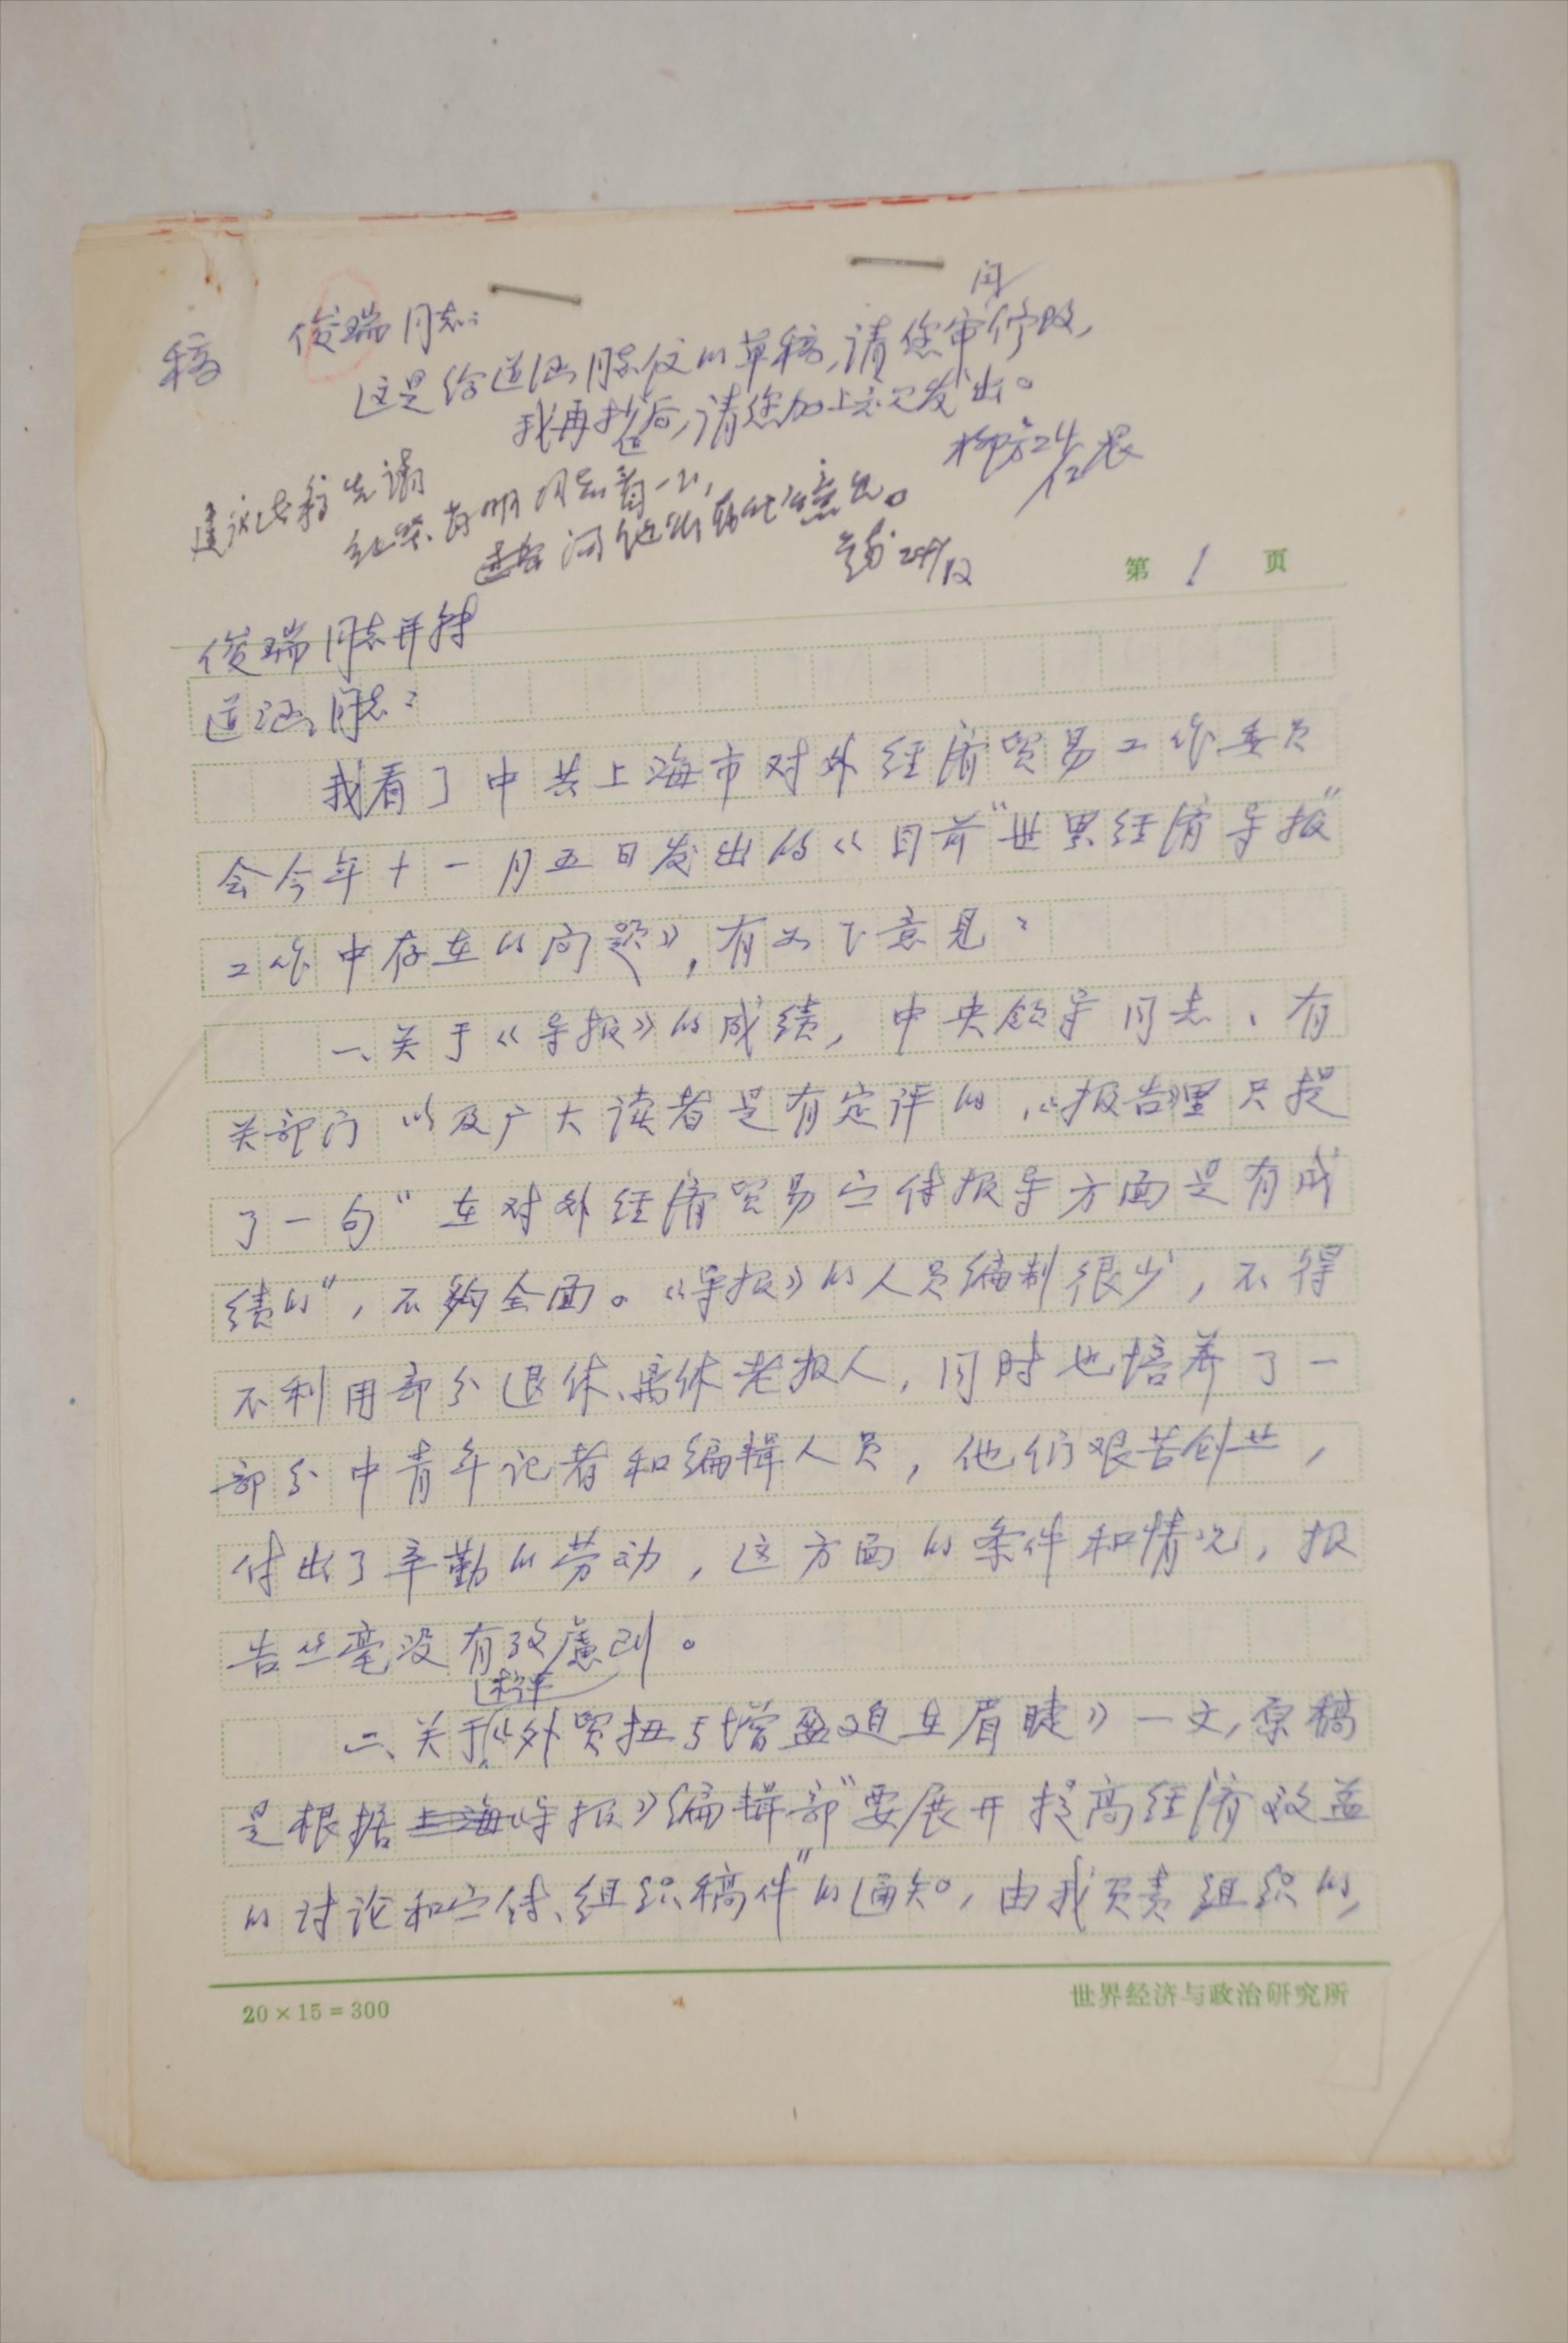 稿
俊瑞同志：
这是给道涵同志信的草稿，请您审阅修改，
我再抄后，请您加上意见发出。
建议此稿先请
同志看一下，
第 1 页
俊瑞同志并转
道涵同志：
我看了中共上海市对外经济贸易工作委员
会今年十一月五日发出的《目前“世界经济导报”
工作中存在的问题》，有如下意见：
一、关于《导报》的成绩，中央领导同志、有
关部门以及广大读者是有定评的，《报告》里只提
了一句“在对外经济贸易宣传报导方面是有成
绩的”，不够全面。《导报》的人员编制很少，不得
不利用部分退休、离休老报人，同时也培养了一
部分中青年记者和编辑人员，他们艰苦创业，
付出了辛勤的劳动，这方面的条件和情况，报
告丝毫没有考虑到。
二、关于批评《外贸扭亏增盈迫在眉睫》一文，原稿
是根据上海《导报》编辑部“要展开提高经济效益
的讨论和宣传、组织稿件”的通知，由我负责组织的，
20×15=300
世界经济与政治研究所